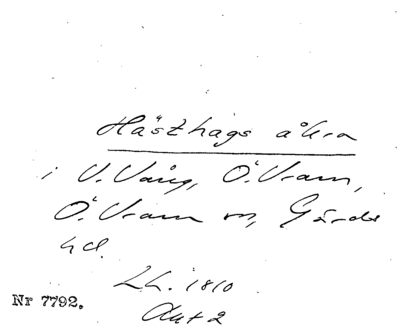 Hästhags åkra
i V. Vång, Ö. Vram,
Ö. Vram sn, Gärds
hd.
LH. 1810
Akt 2
Nr 7792.